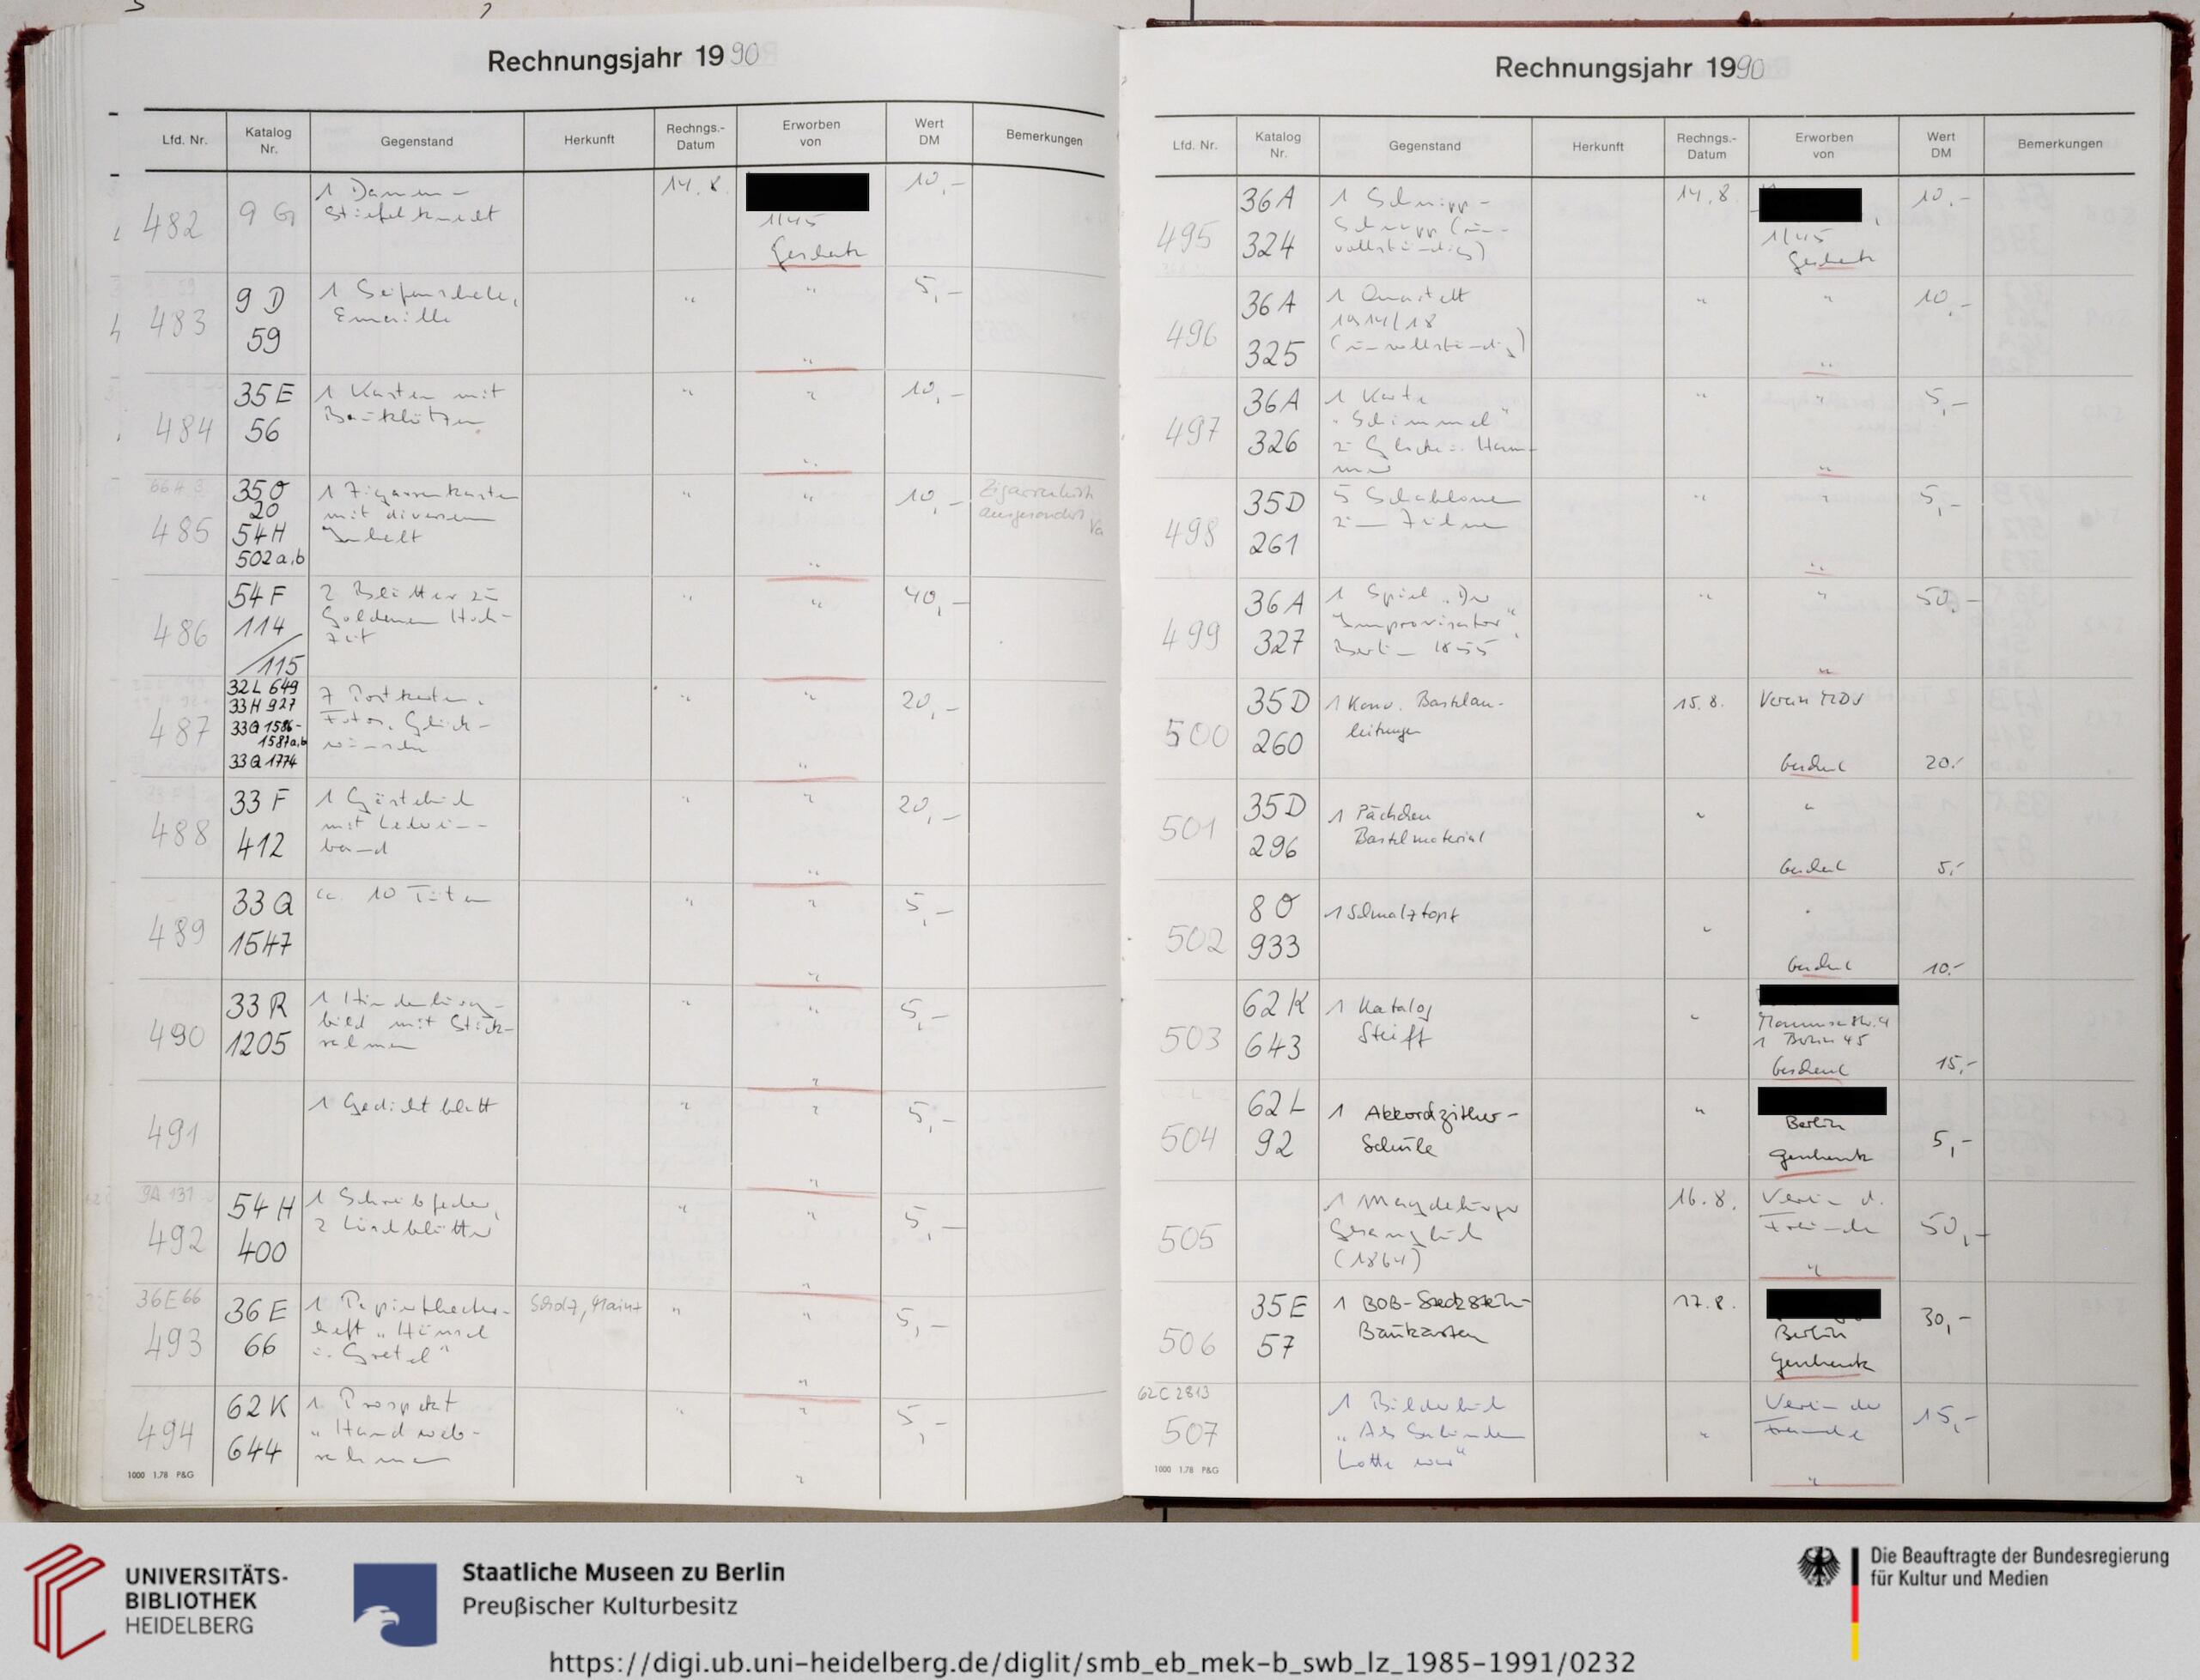 Rechnungsjahr 1990
Lfd. Nr.
Katalog
Nr.
Gegenstand
Herkunft
Rechngs.-
Datum
Erworben
von
Wert
DM
Bemerkungen
482
9 G
1 Damen-
Stiefelknecht
14.8.
1/45
Geschenk
10,-
483
9 D
59
1 Seifenschale,
Emaille
"
"
"
5,-
484
35 E
56
1 Kasten mit
Bauklötzen
"
"
"
10,-
485
35 O
20
54 H
502 a,b
1 Zigarrenkasten
mit diversem
Inhalt
"
"
"
10,-
Zigarrenkiste
ausgesondert
486
54 F
114
/115
2 Blätter zu
Goldenen Hoch-
zeit
"
"
40,-
487
32 L 649
33 H 927
33 Q 1586-
1587 a,b
33 Q 1774
7 Postkarten,
Fotos, Glück-
wünsche
"
"
"
20,-
488
33 F
412
1 Gästebuch
mit Lederein-
band
"
"
"
20,-
489
33 Q
1547
ca. 10 Tüten
"
"
"
5,-
490
33 R
1205
1 Hindenburg-
bild mit Stick-
rahmen
"
"
"
5,-
491
1 Gedichtblatt
"
"
"
5,-
9A 131
492
54 H
400
1 Schreibfeder,
2 Löschblätter
"
"
"
5,-
36 E 66
493
36 E
66
1 Papiertheater-
heft "Hänsel
u. Gretel"
Scholz, Mainz
"
"
"
5,-
494
62 K
644
1 Prospekt
"Handweb-
rahmen
"
"
"
5,-
1000 1.78 P&G
Rechnungsjahr 1990
Lfd. Nr.
Katalog
Nr.
Gegenstand
Herkunft
Rechngs.-
Datum
Erworben
von
Wert
DM
Bemerkungen
495
36 A
324
1 Schnipp-
Schnapp (un-
vollständig)
14.8.
1/45
Geschenk
10,-
496
36 A
325
1 Quartett
1914/18
(unvollständig)
"
"
"
10,-
497
36 A
326
1 Karte
"Schimmel"
zu Glocke u. Ham-
mer
"
"
"
5,-
498
35 D
261
5 Schablonen
zum
"
"
"
5,-
499
36 A
327
1 Spiel "Der
Improvisator"
Berlin 1855
"
"
"
50,-
500
35 D
260
1 Konv. Bastelan-
leitungen
15.8.
Verein
Geschenk
20.-
501
35 D
296
1 Päckchen
Bastelmaterial
"
"
Geschenk
5,-
502
8 O
933
1 Schmalztopf
"
"
Geschenk
10.-
503
62 K
643
1 Katalog
Steiff
"
1 Berlin 45
Geschenk
15,-
504
62 L
92
1 Akkordzither-
Schule
"
Berlin
Geschenk
5,-
505
1 Magdeburger
Gesangbuch
(1864)
16.8.
Verein d.
Freunde
"
50,-
506
35 E
57
1 BOB-Steckstein-
Baukasten
17.8.
Berlin
Geschenk
30,-
62 C 2813
507
1 Bilderbuch
"Als
Lotte war"
"
Verein der
Freunde
"
15,-
1000 1.78 P&G
UNIVERSITÄTS-
BIBLIOTHEK
HEIDELBERG
Staatliche Museen zu Berlin
Preußischer Kulturbesitz
Die Beauftragte der Bundesregierung
für Kultur und Medien
https://digi.ub.uni-heidelberg.de/diglit/smb_eb_mek-b_swb_lz_1985-1991/0232